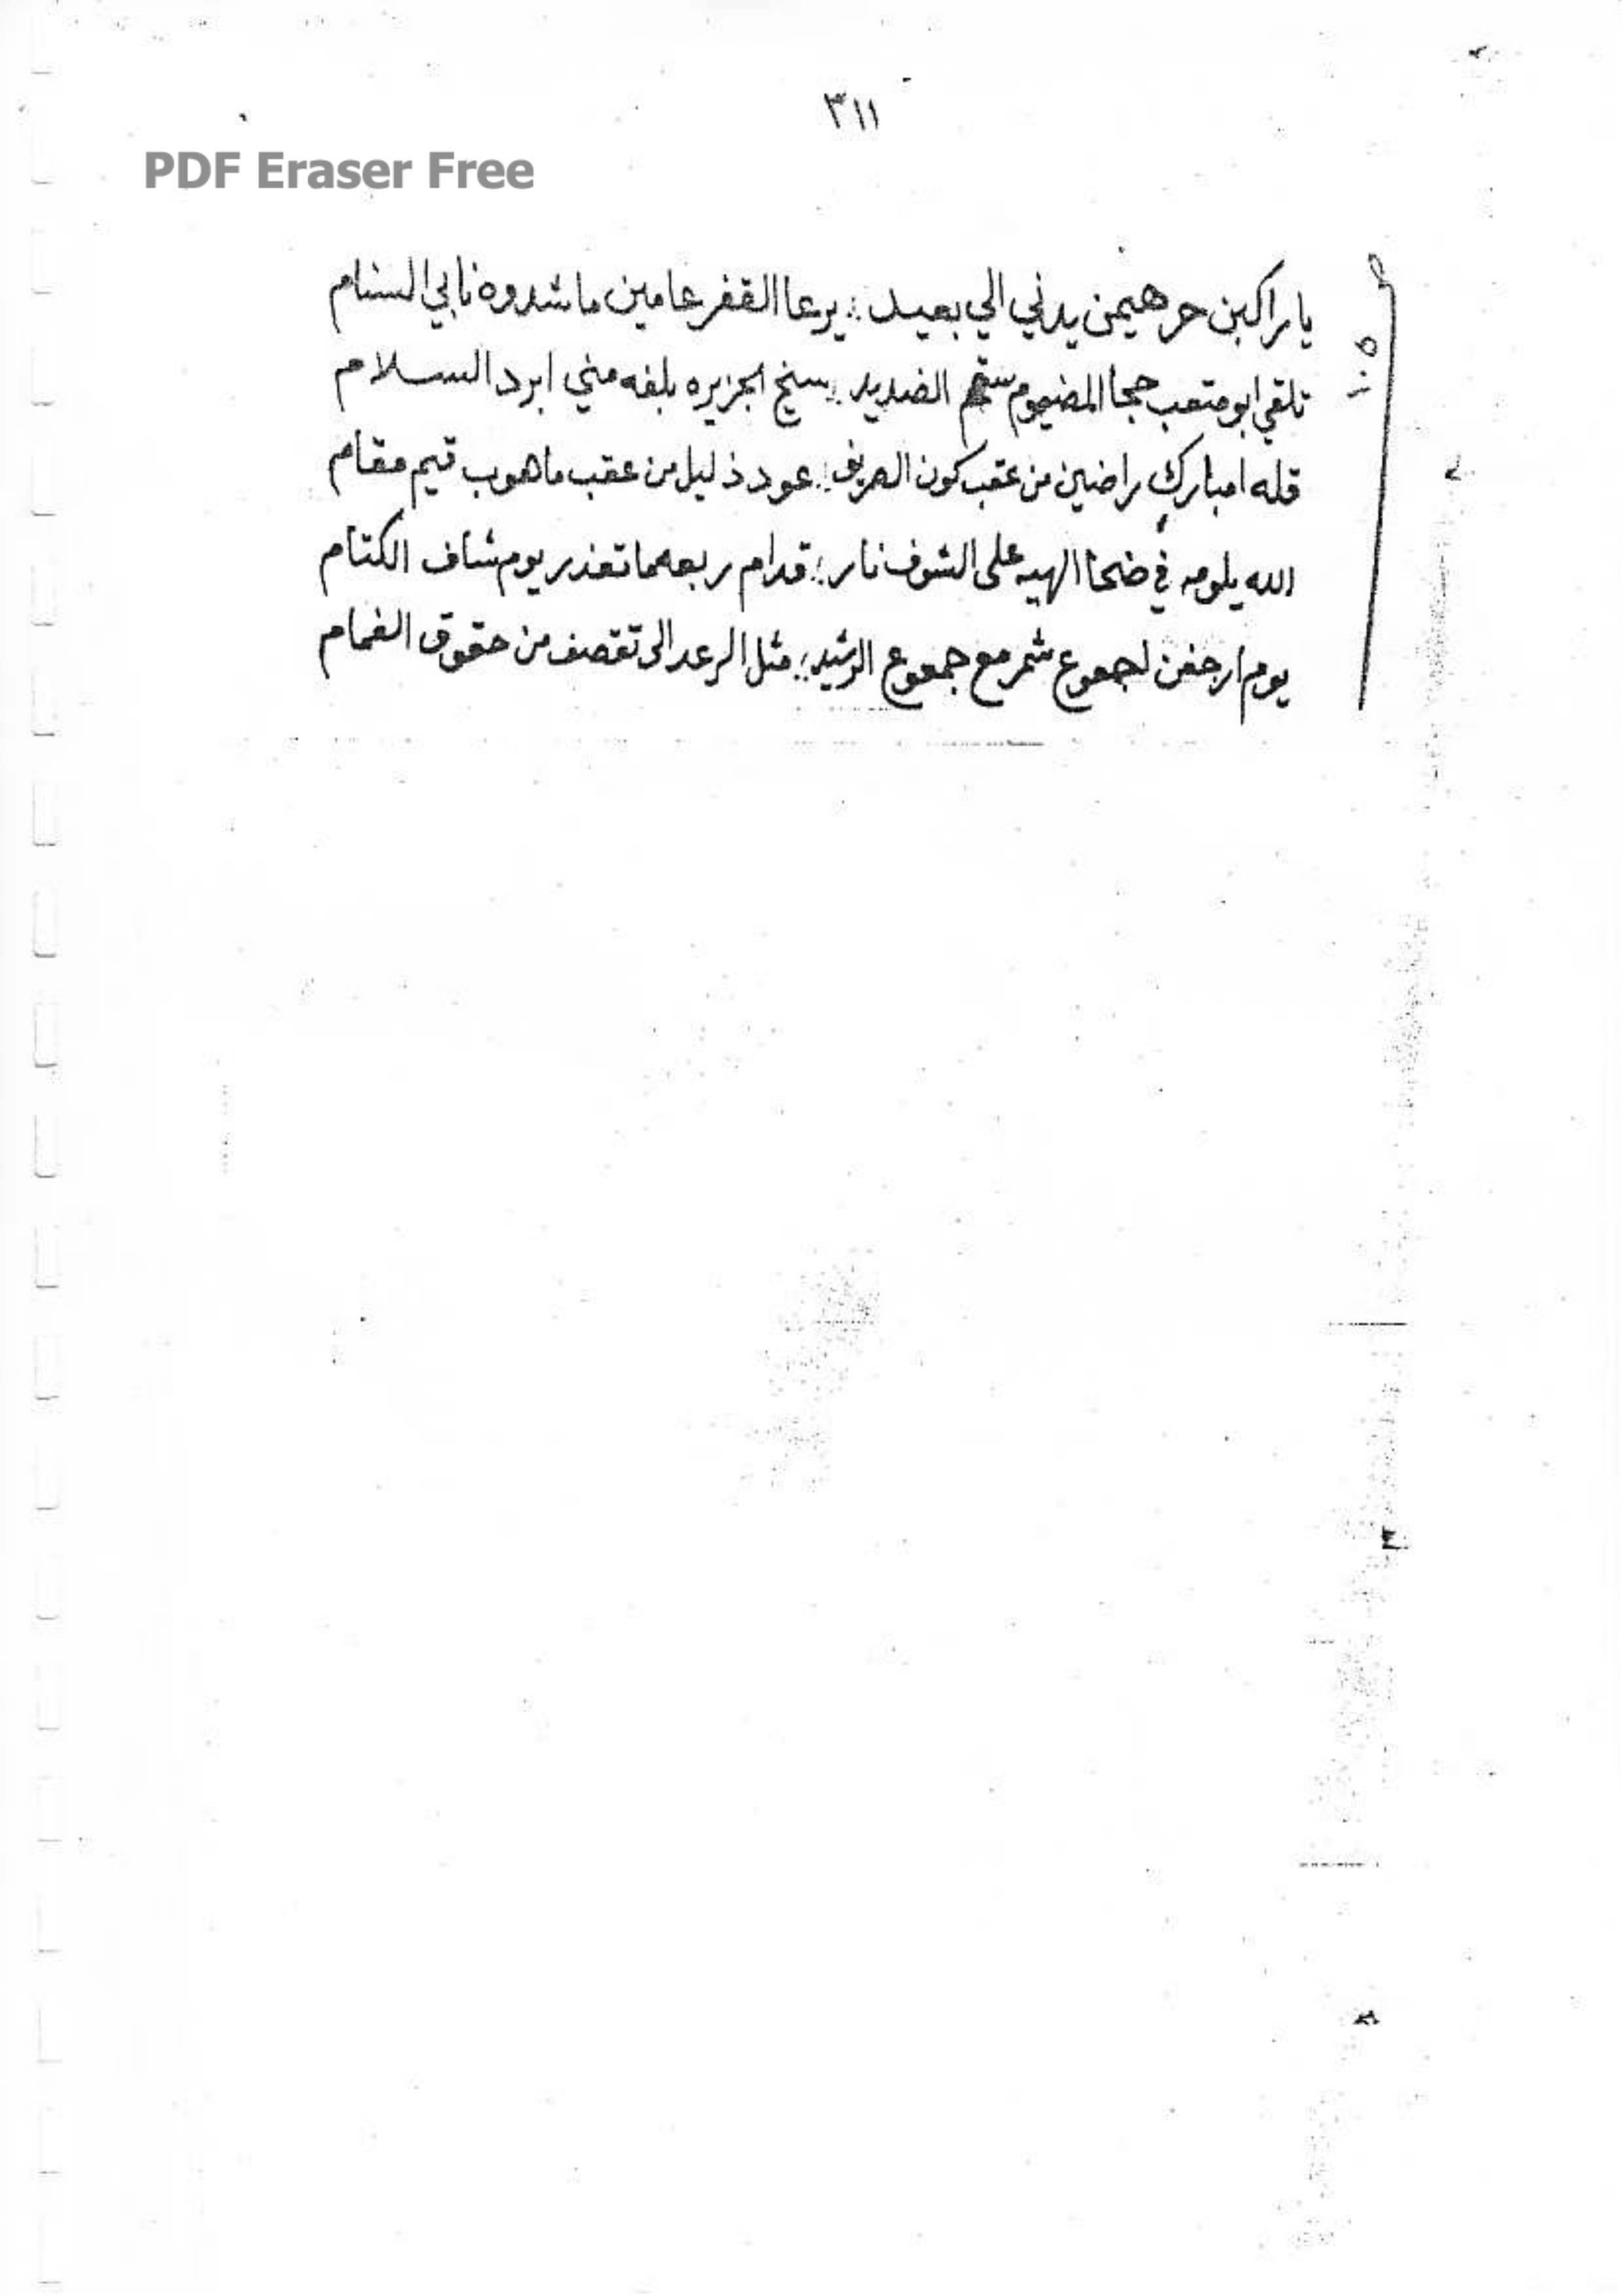 ٣١١
PDF Eraser Free
يا راكبن حر هيمن يدني الي بعيد ؛ يرعا القفر عامين ما شدوه نابي السنام
تلقي ابو متعب حجا المضيوم الضديد ؛ شيخ الجزيره بلغه مني ابرد السلام
قله امبارك راضين من عقب كون الصريف ؛ عود ذليل من عقب ماهوب قيم مقام
الله يلومه في ضحا الهيه على الشوف نار ؛ قدام ربعه ما تعذر يوم شاف الكتام
يوم ارجفن لجموع شمر مع جموع الرشيد ؛ مثل الرعد الى تقصف من حقوق الغمام